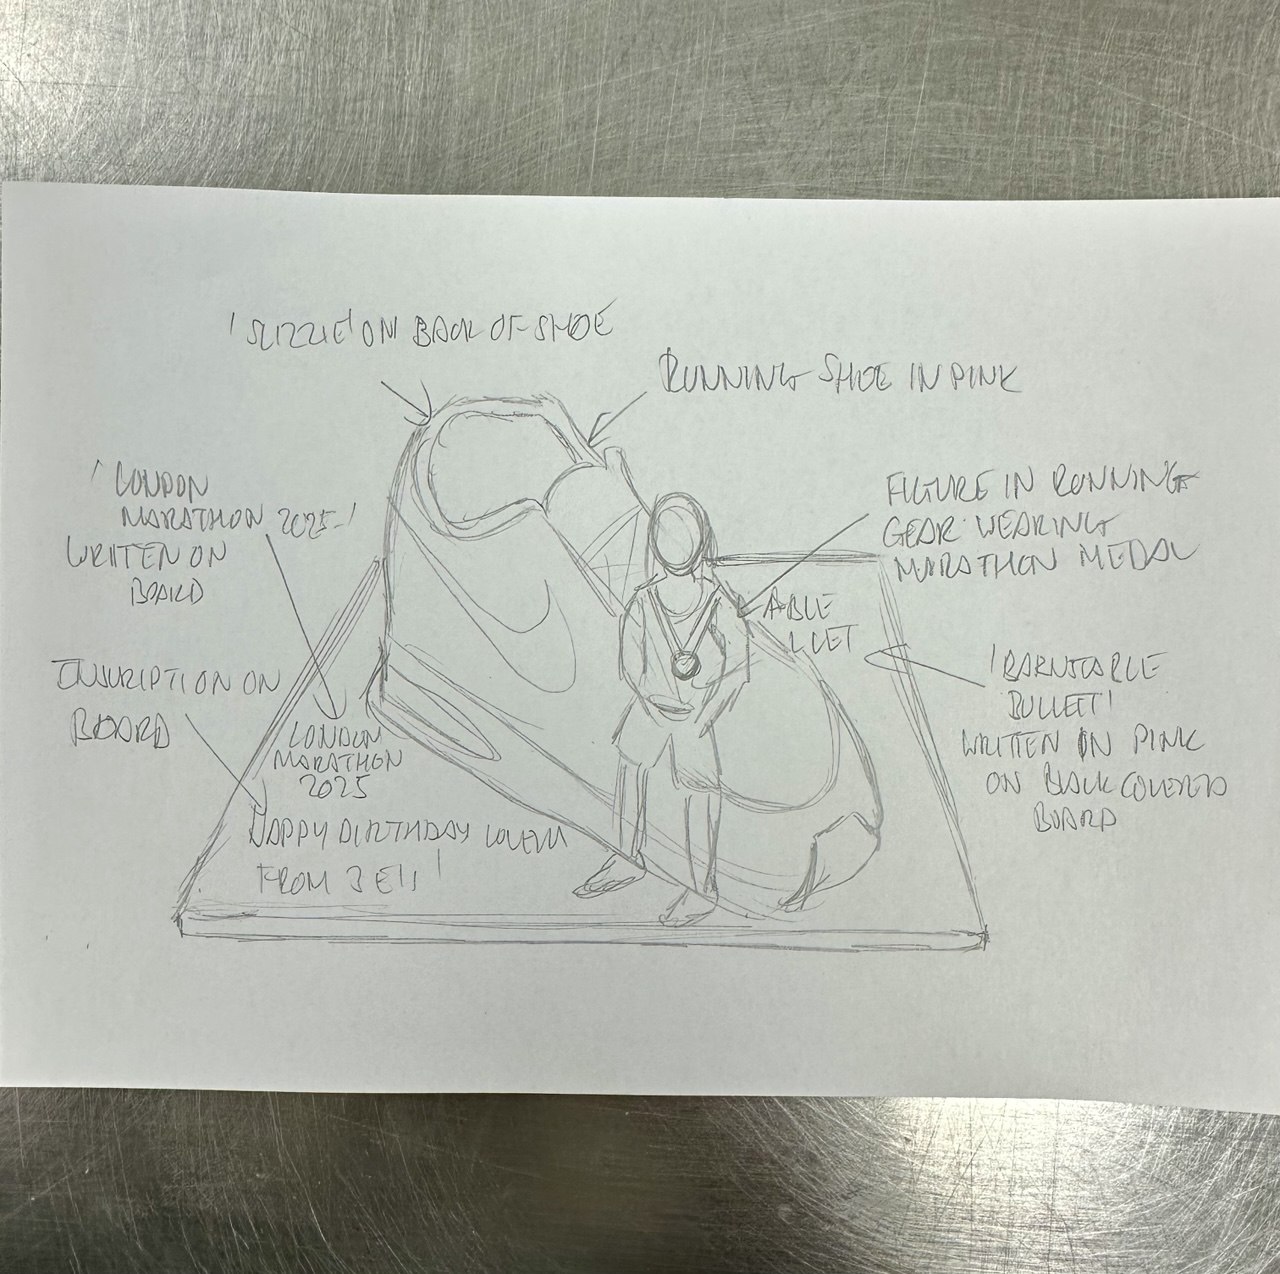 'SLIZZIE' ON BACK OF SHOE
RUNNING SHOE IN PINK
'LONDON
MARATHON 2025'
WRITTEN ON
BOARD
FIGURE IN RUNNING
GEAR WEARING
MARATHON MEDAL
ABLE
LLET
INSCRIPTION ON
BOARD
'BARNSTABLE
BULLET'
WRITTEN IN PINK
ON BLACK COVERED
BOARD
LONDON
MARATHON
2025
HAPPY BIRTHDAY
FROM